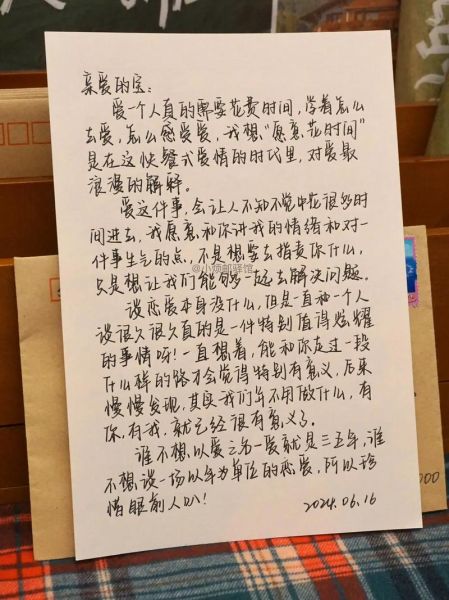 亲爱的宝:
爱一个人真的需要花费时间,学着怎么
去爱,怎么感受爱,我想,“愿意花时间”
是在这快餐式爱情的时代里,对爱最
浪漫的解释。
爱这件事,会让人不知不觉中花很多时
间进去,我愿意和你讲我的情绪和对一
件事生气的点,不是想要去指责你什么,
只是想让我们能够一起去解决问题。
谈恋爱本身没什么,但是一直和一个人
谈很久很久真的是一件特别值得炫耀
的事情呀!一直想着,能和你走过一段
什么样的路才会觉得特别有意义,后来
慢慢发现,其实我们并不用做什么,有
你,有我,就已经很有意义了。
谁不想以爱之名一爱就是三五年,谁
不想谈一场以年为单位的恋爱,所以珍
惜眼前人叭!
2024.06.16
@小烦邮驿馆
000